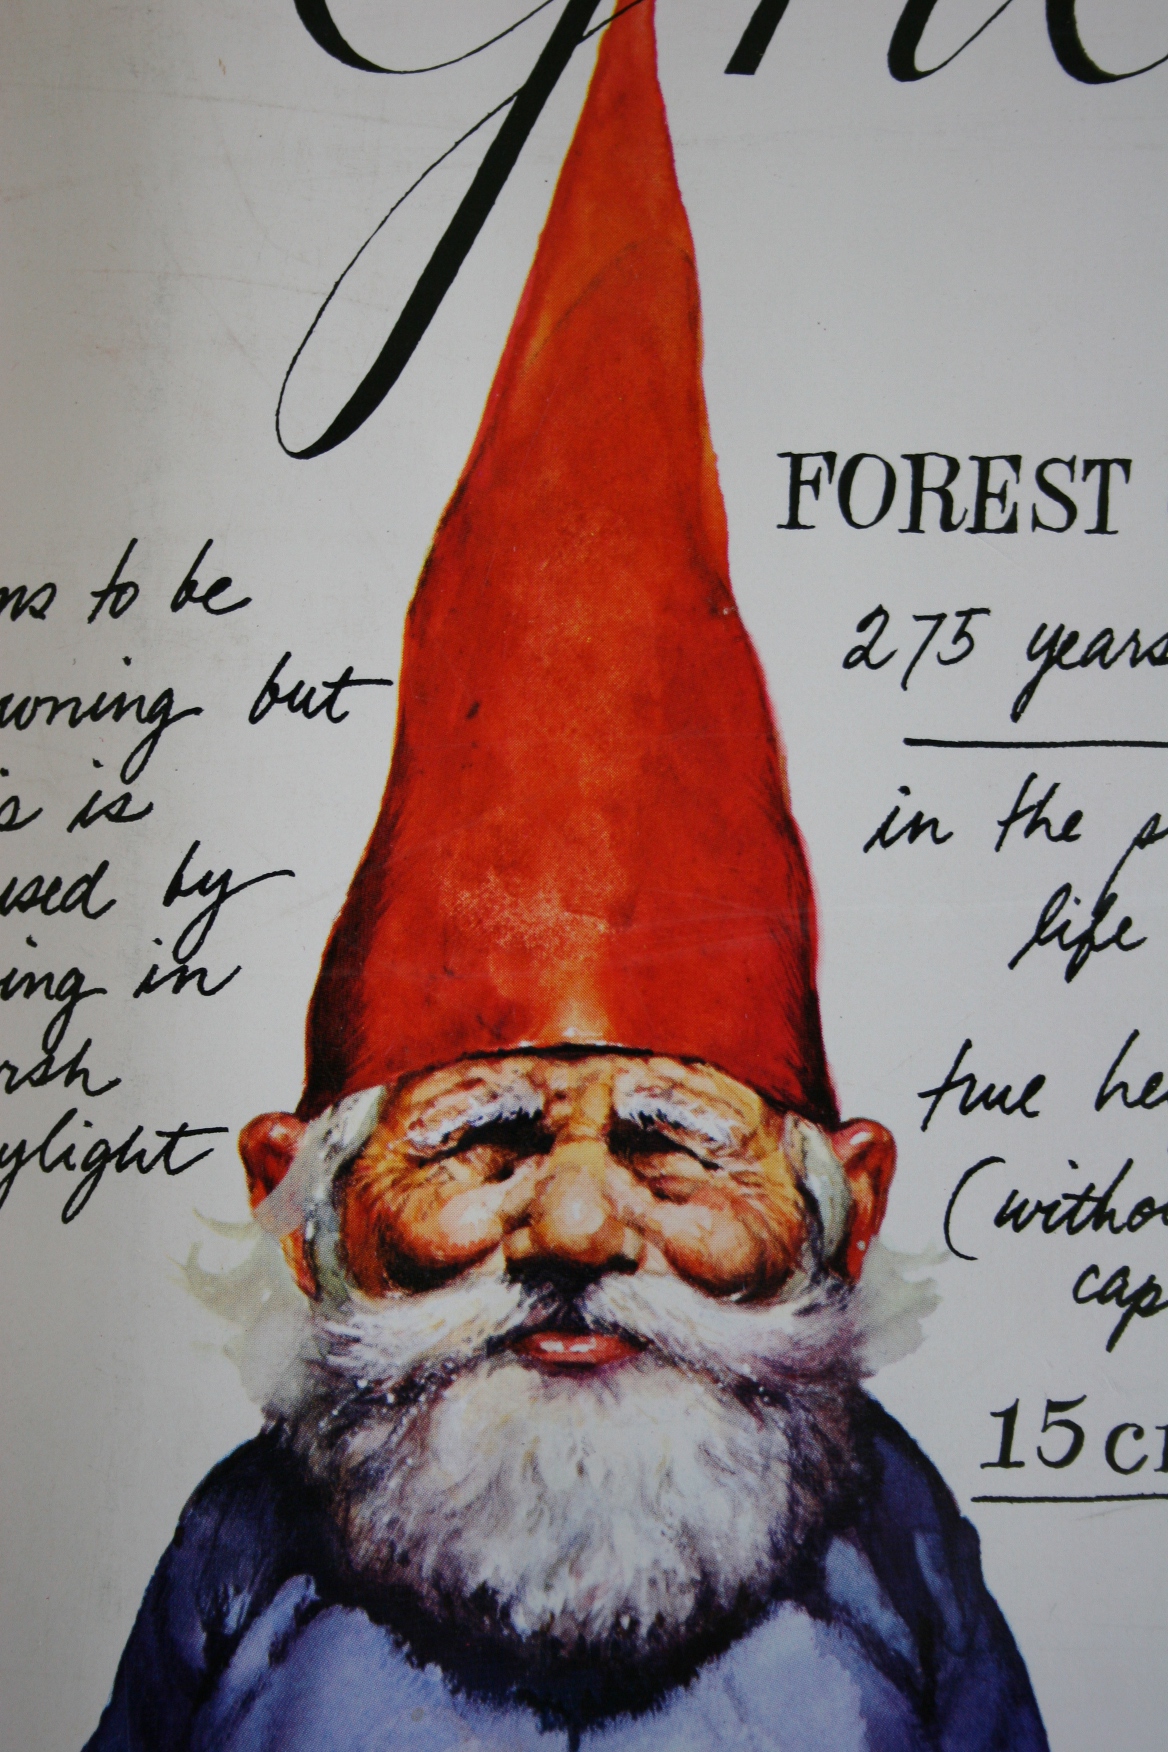 Gn
FOREST
275 years
ns to be
wning but
s is
used by
ing in
rsh
ylight
in the p
life
true he
(witho
cap
15 c